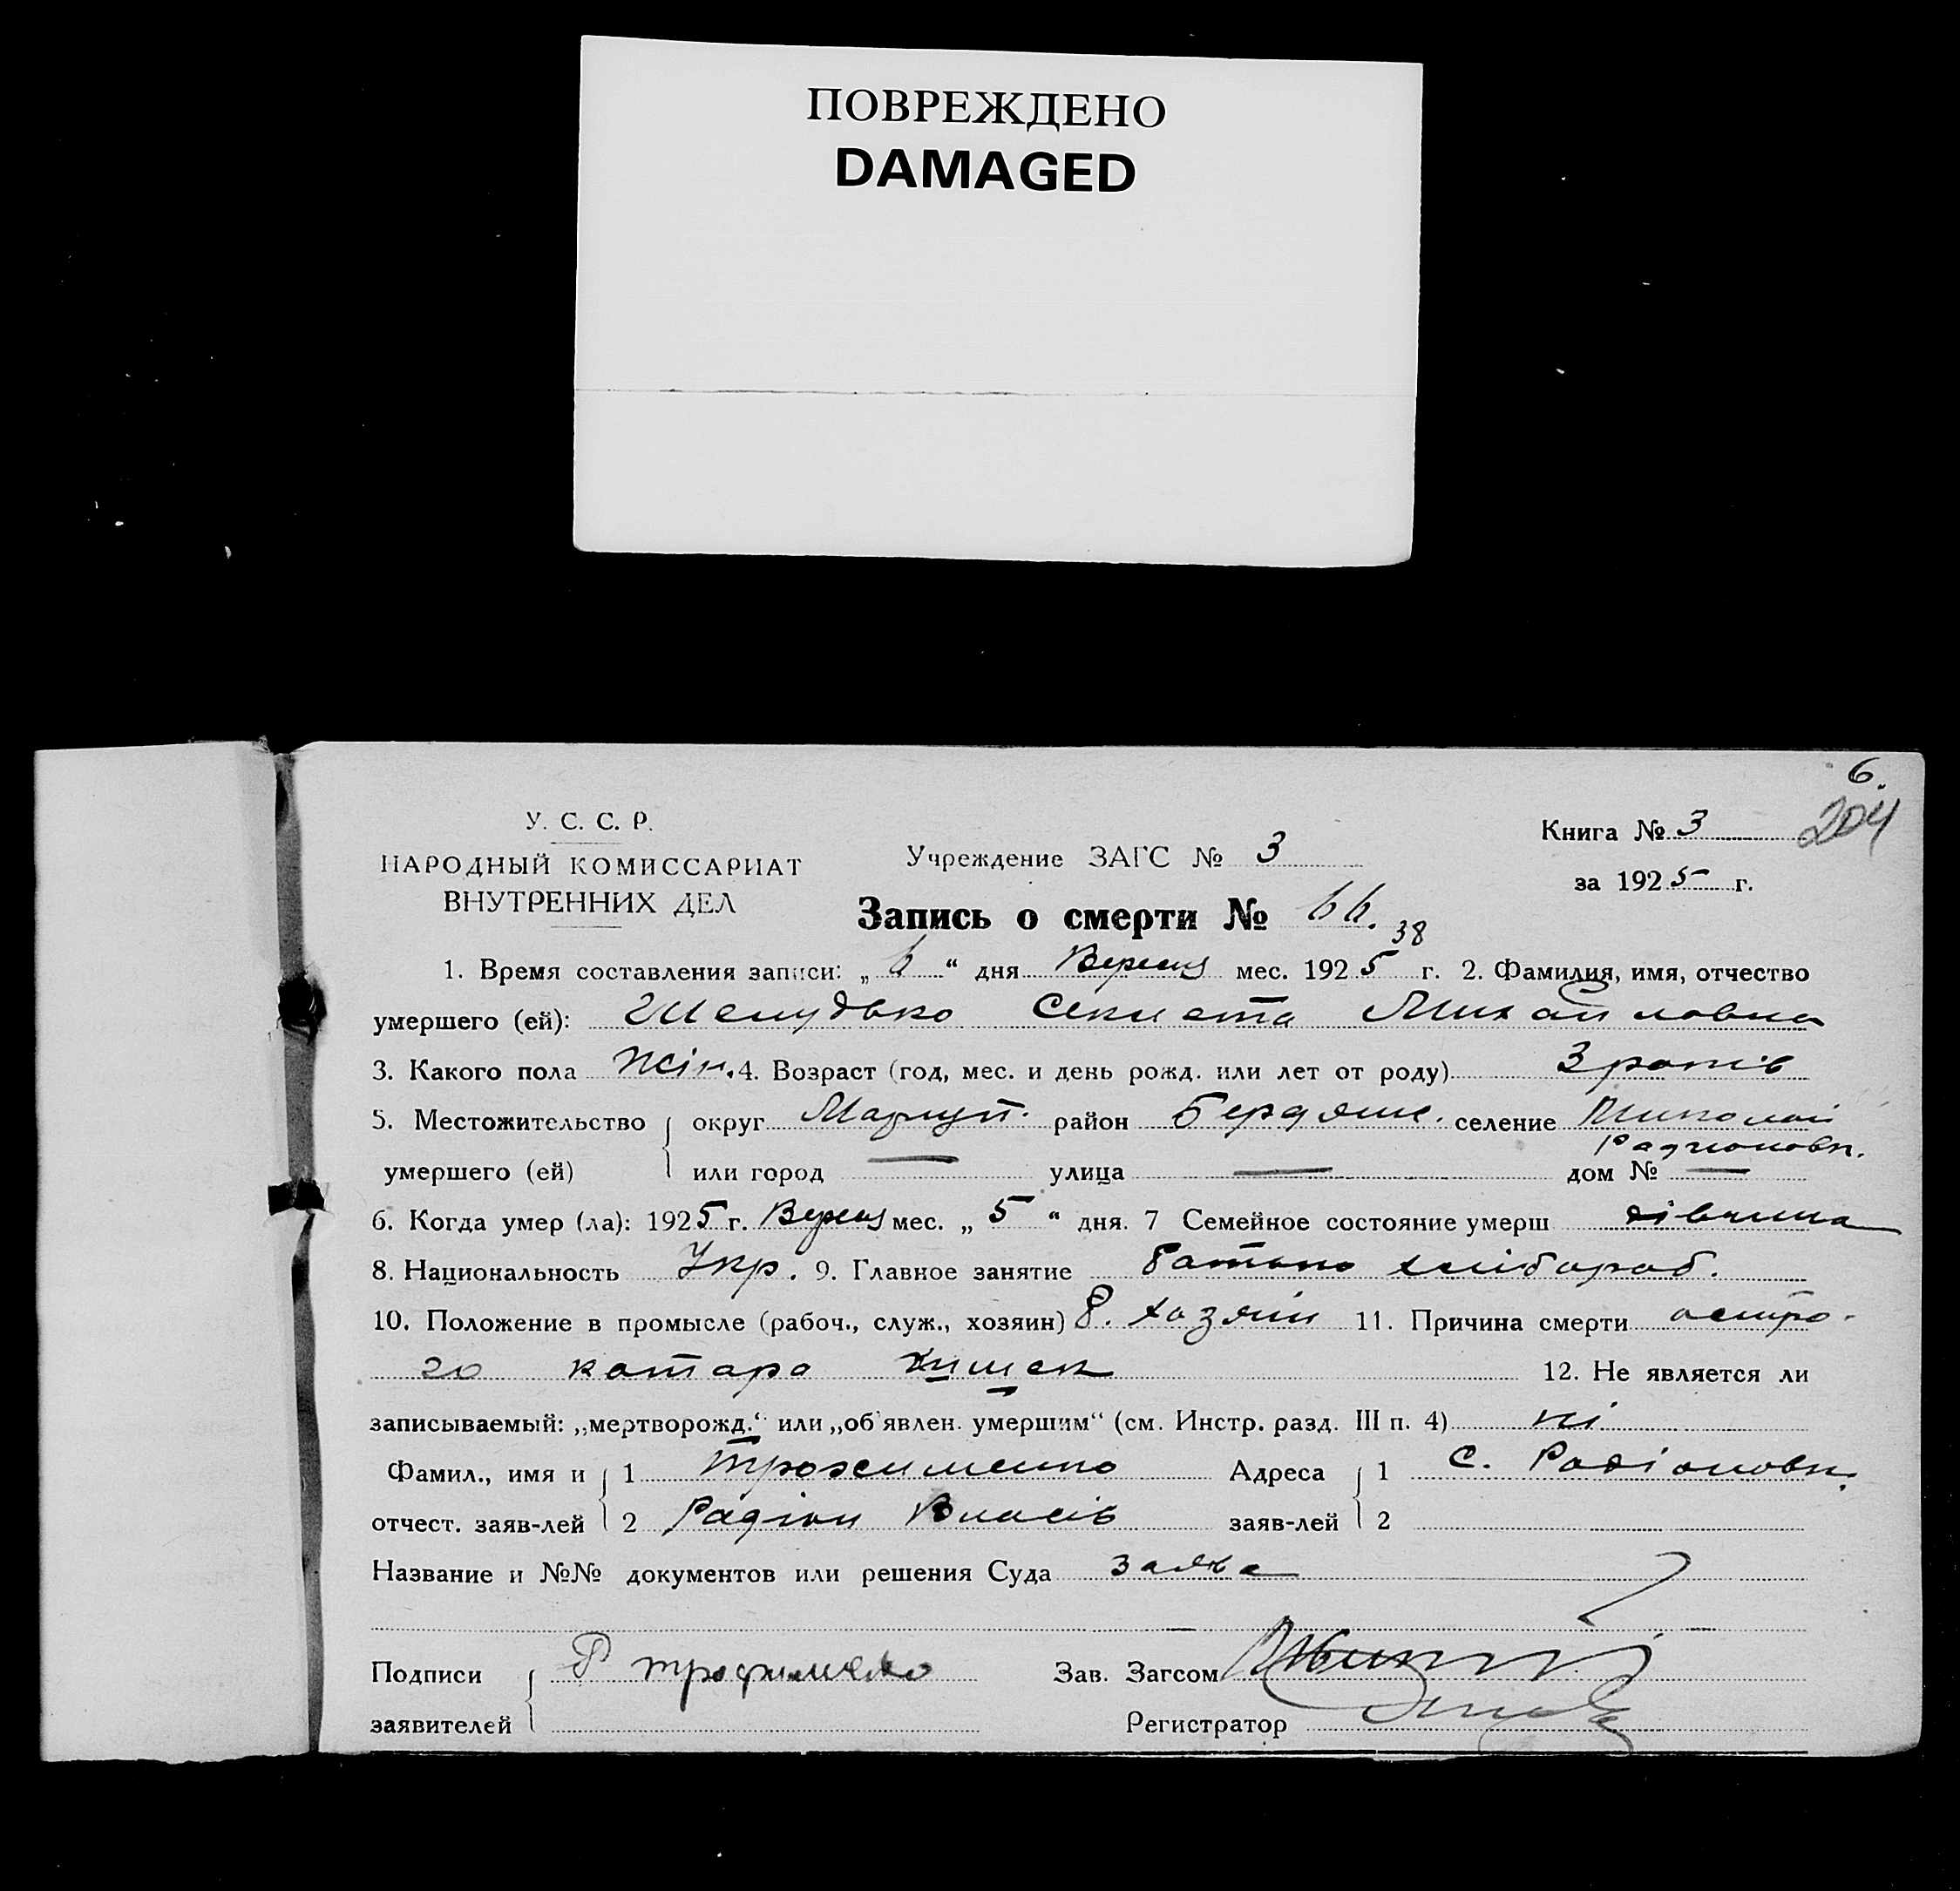 ПОВРЕЖДЕНО
DAMAGED
6.
204
У. С. С. Р.
НАРОДНЫЙ КОМИССАРИАТ
ВНУТРЕННИХ ДЕЛ
Учреждение ЗАГС № 3
Книга № 3
за 1925 г.
Запись о смерти № 66.
38
1. Время составления записи: „ 6 “ дня Вересня мес. 1925 г. 2. Фамилия, имя, отчество
умершего (ей): Шелудько Секлета Михайловна
3. Какого пола жін. 4. Возраст (год, мес. и день рожд. или лет от роду) 3 років
5. Местожительство округ Маріуп. район Бердянс. селение Миколай
Радионовк.
умершего (ей) или город — улица — дом № —
6. Когда умер (ла): 1925 г. Вересня мес. „ 5 “ дня. 7 Семейное состояние умерш дівчина
8. Национальность Укр. 9. Главное занятие батько хлібороб.
10. Положение в промысле (рабоч., служ., хозяин) б. хазяїн 11. Причина смерти остро-
го катара кишек 12. Не является ли
записываемый: „мертворожд.“ или „об'явлен. умершим“ (см. Инстр. разд. III п. 4) ні
Фамил., имя и 1 Трохименко Адреса 1 С. Радіоновк.
отчест. заяв-лей 2 Радіон Власів заяв-лей 2
Название и №№ документов или решения Суда заява
Подписи Р трофименко Зав. Загсом
заявителей Регистратор